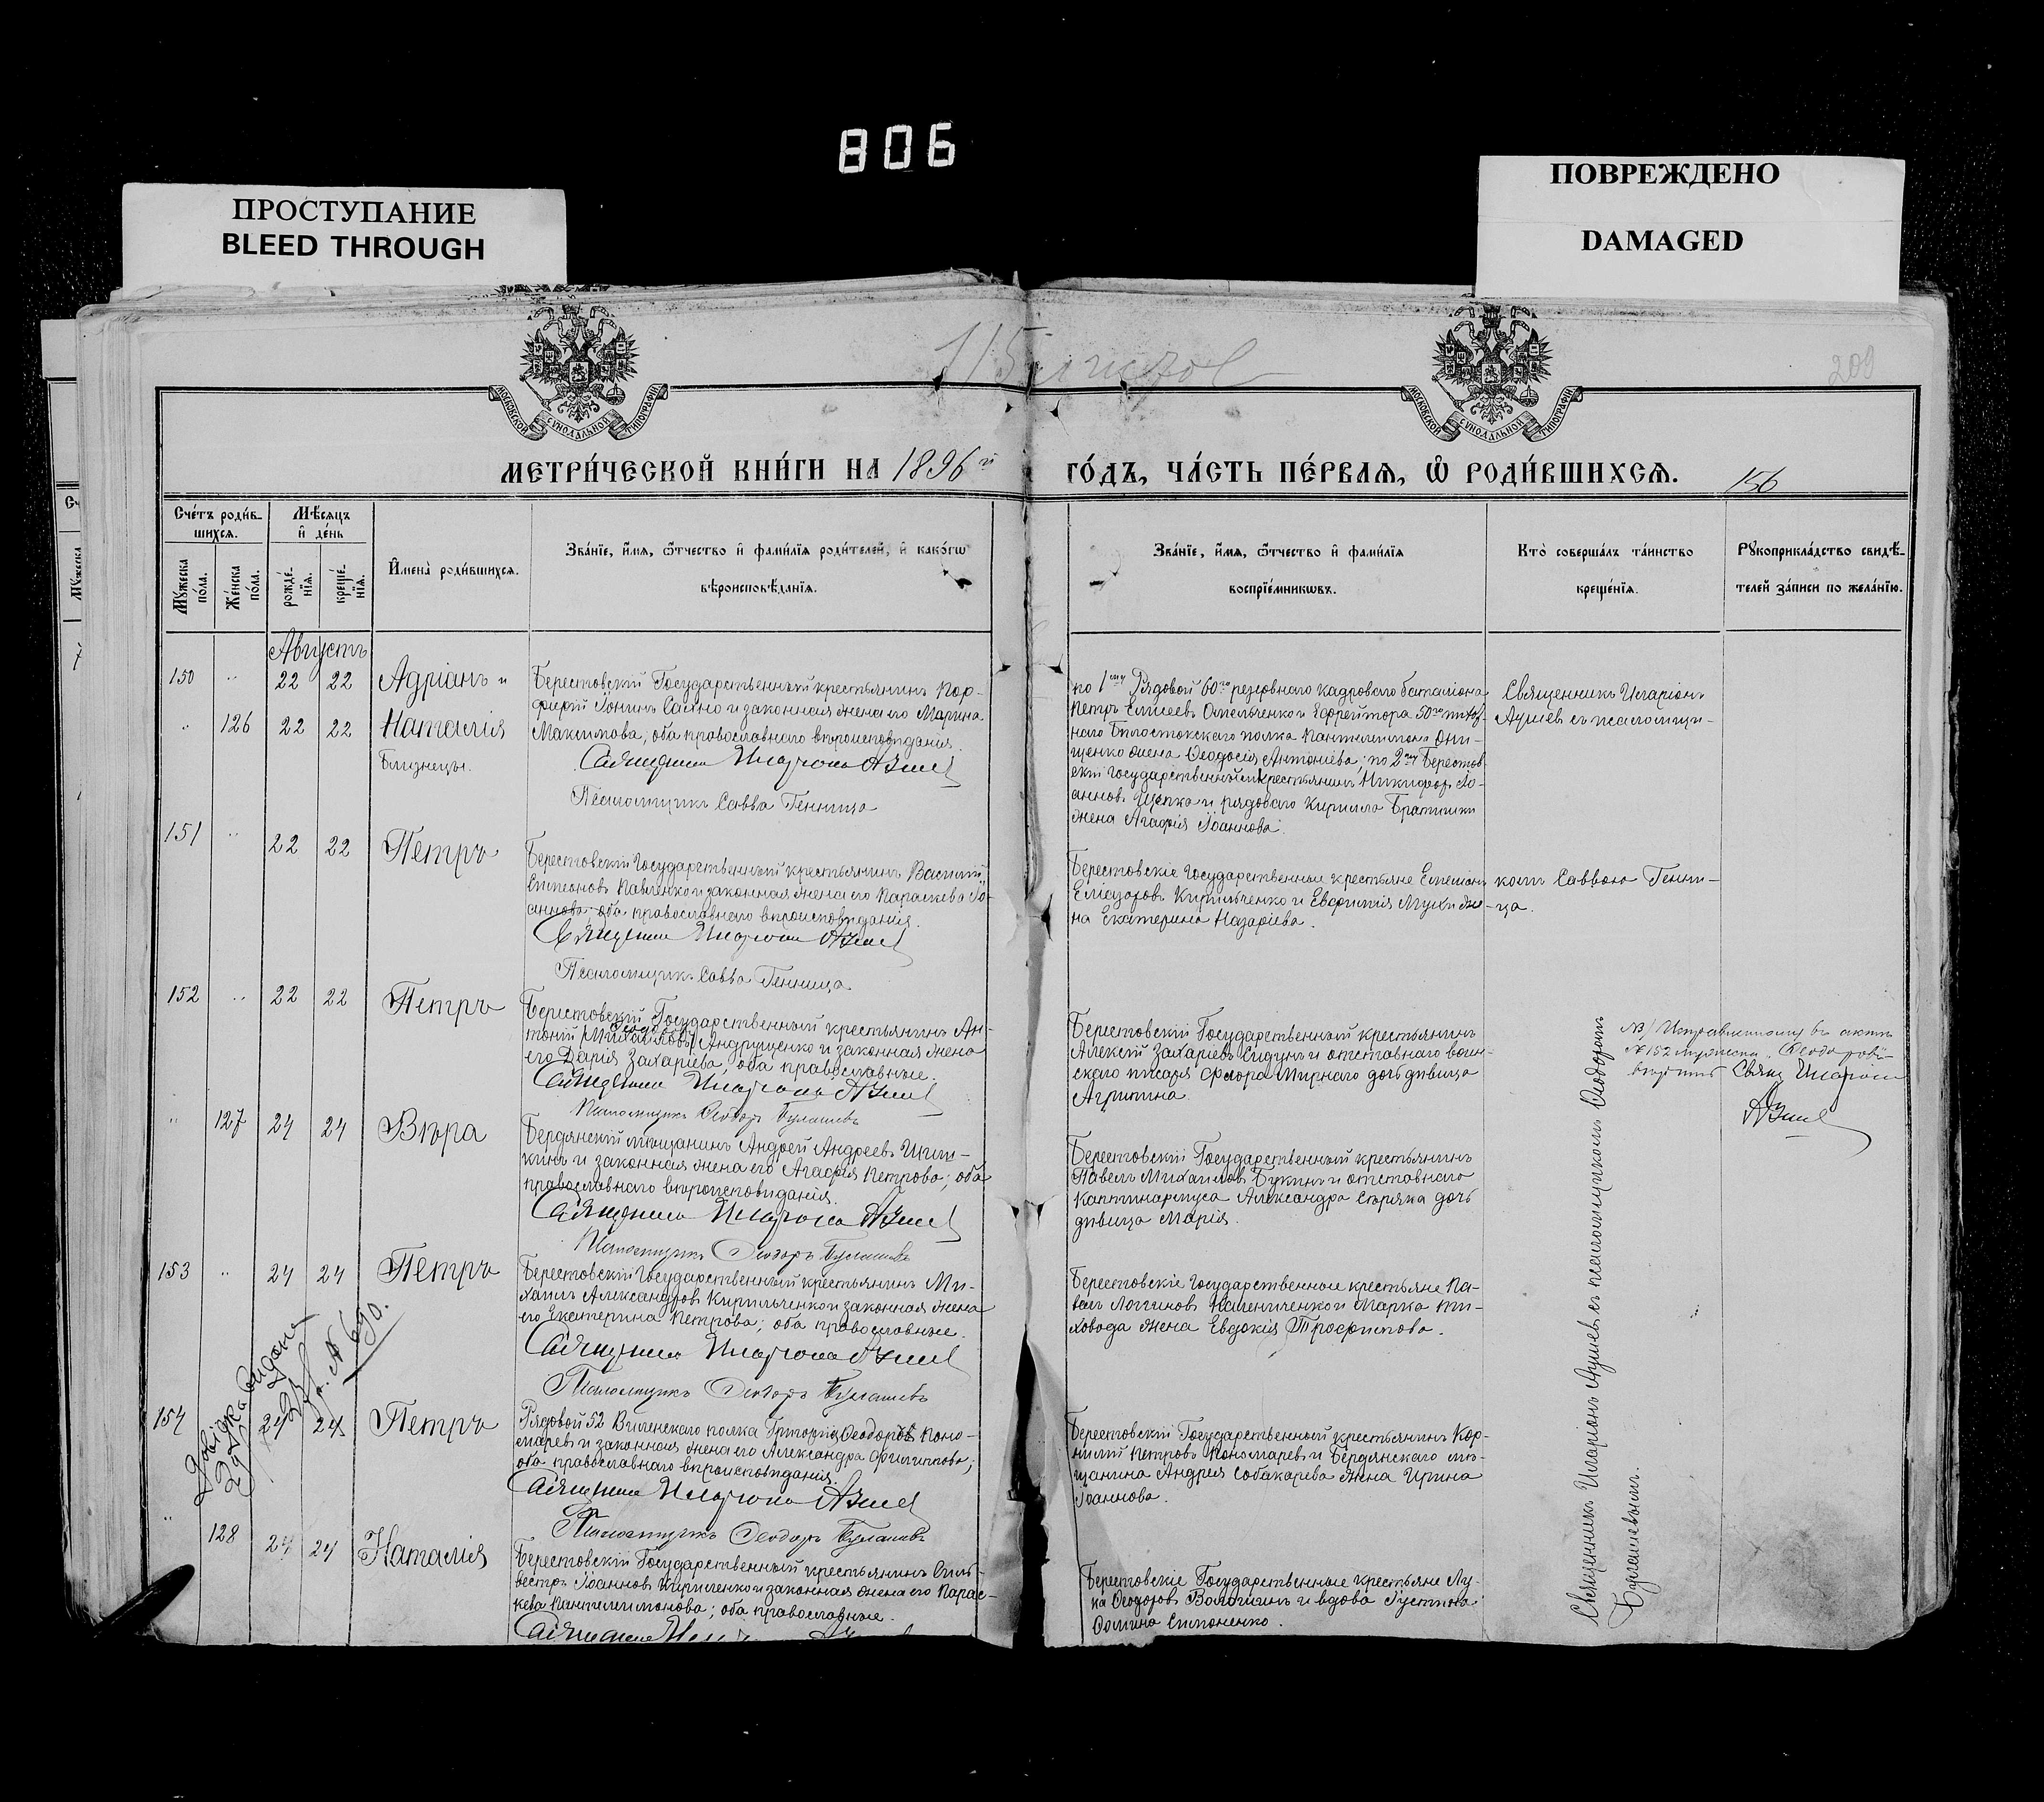 806
ПРОСТУПАНИЕ
BLEED THROUGH
ПОВРЕЖДЕНО
DAMAGED
115
200
МОСКОВСКОЙ СУНОДАЛЬНОЙ ТИПОГРАФІИ
МОСКОВСКОЙ СУНОДАЛЬНОЙ ТИПОГРАФІИ
МЕТРИ́ЧЕСКОЙ КНИ́ГИ НА 1896й ГО́ДЪ, ЧА́СТЬ ПЕ́РВАѦ, Ѡ РОДИ́ВШИХСѦ. 156
Сче́тъ роди́в-
шихсѧ.
Мѣ́сѧцъ
и҆ де́нь
Мꙋ́жеска по́ла.
Же́нска по́ла.
рожде́-нїѧ.
креще́-нїѧ.
И҆мена̀ роди́вшихсѧ.
Зва́нїе, и҆́мѧ, ѻ҆́тчество и҆ фами́лїѧ роди́телей, и҆ како́гѡ
вѣроисповѣ́данїѧ.
Зва́нїе, и҆́мѧ, ѻ҆́тчество и҆ фами́лїѧ
воспрїе́мникѡвъ.
Кто̀ соверша́лъ та́инство
креще́нїѧ.
Рꙋкоприкла́дство свидѣ́-
телей за́писи по жела́нїю.
Августъ
150 " 22 22 Адріанъ и
" 126 22 22 Наталія
Близнецы.
Берестовскій Государственный крестьянинъ Пор-
фирій Іонинъ и законная жена его Марина
Максимова, оба православнаго вѣроисповѣданія.
Священникъ Иларіонъ
Псаломщикъ Савва Генница
по 1му Рядовой 60го резервнаго кадроваго баталіона
Петръ Елисеевъ Омельченко и Ефрейтора 50го пѣхот-
наго Бѣлостокскаго полка Пантелеимона Они-
щенко жена Ѳеодосія Антоніева; по 2му Берестов-
скій Государственный крестьянинъ Никифоръ Іо-
анновъ и рядового Кирилла
жена Агафія Іоаннова.
Священникъ Иларіонъ
съ псаломщи-
151 " 22 22 Петръ
Берестовскій Государственный крестьянинъ Василій
Симеоновъ Павленко и законная жена его Параскева Іо-
аннова оба православнаго вѣроисповѣданія.
Священникъ Иларіонъ
Псаломщикъ Савва Генница
Берестовскіе Государственные крестьяне Емельянъ
Еліазаровъ Кирильченко и Евфимія Мухи же-
на Екатерина Назаріева.
комъ Саввою Генни-
ца.
152 " 22 22 Петръ
Берестовскій Государственный крестьянинъ Ан-
тоній Михайловъ Андрущенко и законная жена
его Дарія Захаріева, оба православные.
Священникъ Иларіонъ
Псаломщикъ Ѳеодоръ
Берестовскій Государственный крестьянинъ
Алексій Захаріевъ и отставнаго воин-
скаго писаря Флора Мирнаго дочь дѣвица
Агрипина.
№152
Свящ. Иларіонъ
" 127 24 24 Вѣра
Бердянскій мѣщанинъ Андрей Андреевъ Шиш-
кинъ и законная жена его Агафія Петрова; оба
православнаго вѣроисповѣданія.
Священникъ Иларіонъ
Псаломщикъ Ѳеодоръ
Берестовскій Государственный крестьянинъ
Павелъ Михаиловъ Букинъ и отставнаго
каптинармуса Александра Сѣряка дочь
дѣвица Марія.
153 " 24 24 Петръ
Берестовскій Государственный крестьянинъ Ми-
хаилъ Александровъ Кирильченко и законная жена
его Екатерина Петрова; оба православные.
Священникъ Иларіонъ
Псаломщикъ Ѳеодоръ
Берестовскіе Государственные крестьяне Па-
велъ Логгиновъ и Марка Ти-
ховода жена Евдокія Трофимова.
Довідка видана
№ 690.
154 24 24 Петръ
Рядовой 52 Виленскаго полка Григорій Ѳеодоровъ Поно-
маревъ и законная жена его Александра Филиппова;
оба православнаго вѣроисповѣданія.
Священникъ Иларіонъ
Псаломщикъ Ѳеодоръ
Берестовскій Государственный крестьянинъ Кор-
нилій Петровъ Пономаревъ и Бердянскаго мѣ-
щанина Андрея Собакарева жена Ирина
Іоаннова.
" 128 24 24 Наталія
Берестовскій Государственный крестьянинъ Силь-
вестръ Іоанновъ Кириленко и законная жена его Парас-
кева Пантелеимонова; оба православные.
Берестовскіе Государственные крестьяне Лу-
ка Ѳеодоровъ Волошинъ и вдова
Симоненко.
Священникъ Иларіонъ съ псаломщикомъ Ѳеодоромъ